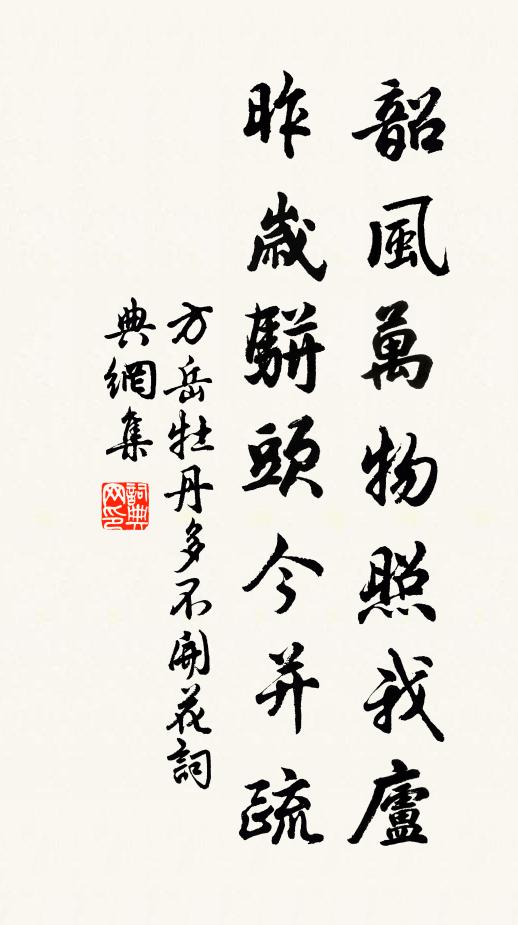 韶風萬物照我廬
昨歲駢頭今并疏
方岳牡丹多不開花詞
典網集
詞典网印